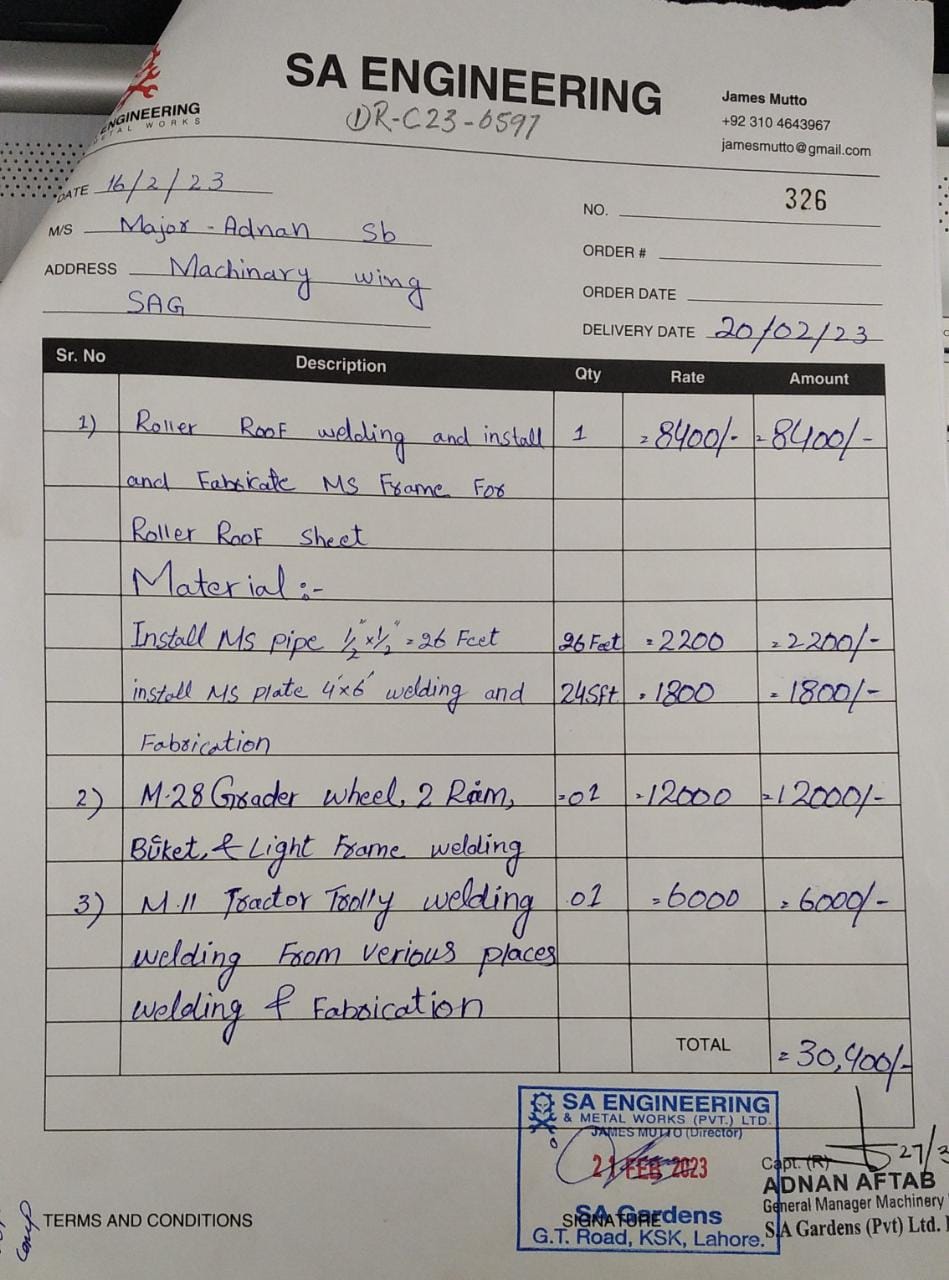 ENGINEERING
METAL WORKS
SA ENGINEERING
DR-C23-6597
James Mutto
+92 310 4643967
jamesmutto@gmail.com
DATE 16/2/23
NO. 326
M/S Major - Adnan Sb
ORDER #
ADDRESS Machinary wing
SAG
ORDER DATE
DELIVERY DATE 20/02/23
Sr. No Description Qty Rate Amount
1) Roller Roof welding and install 1 = 8400/- = 8400/-
and Fabricate MS Frame For
Roller Roof Sheet
Material :-
Install MS pipe 1/2" x 1/2" = 26 Feet 26 Feet = 2200 = 2200/-
install MS plate 4'x6' welding and 24Sft = 1800 = 1800/-
Fabrication
2) M-28 Grader wheel, 2 Rim, =01 =12000 =12000/-
Buket, & Light Frame welding
3) M.11 Tractor Trolly welding 01 =6000 = 6000/-
welding From verious places
welding & Fabrication
TOTAL = 30,400/-
SA ENGINEERING
& METAL WORKS (PVT.) LTD.
JAMES MUTTO (Director)
21 FEB 2023
SA Gardens
G.T. Road, KSK, Lahore.
SIGNATURE
27/3
Capt. (R)
ADNAN AFTAB
General Manager Machinery
S.A Gardens (Pvt) Ltd.
TERMS AND CONDITIONS